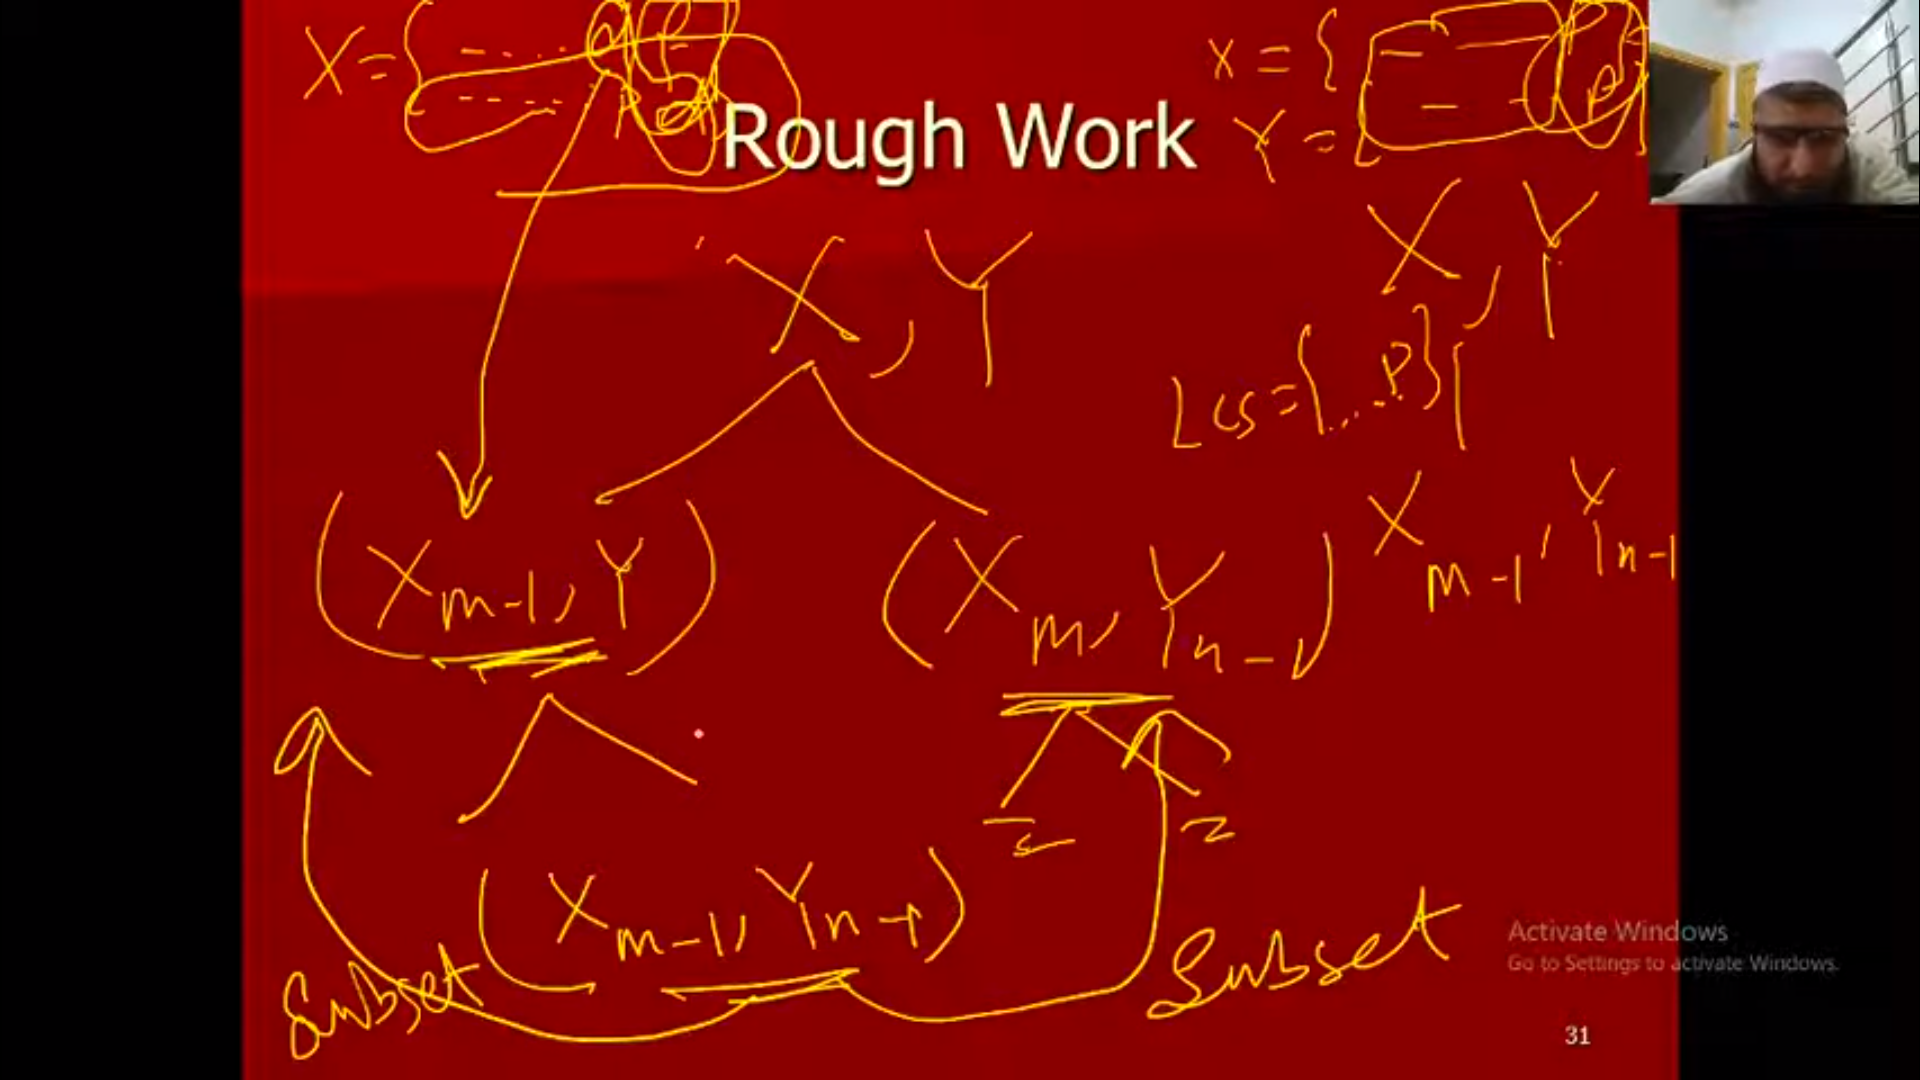 X = {
X = {
Y =
Rough Work
X, Y
X, Y
LCS = {...P}
(Xm-1, Y)
(Xm, Yn-1)
Xm-1, Yn-1
(Xm-1, Yn-1)
Subset
Subset
Activate Windows
Go to Settings to activate Windows.
31